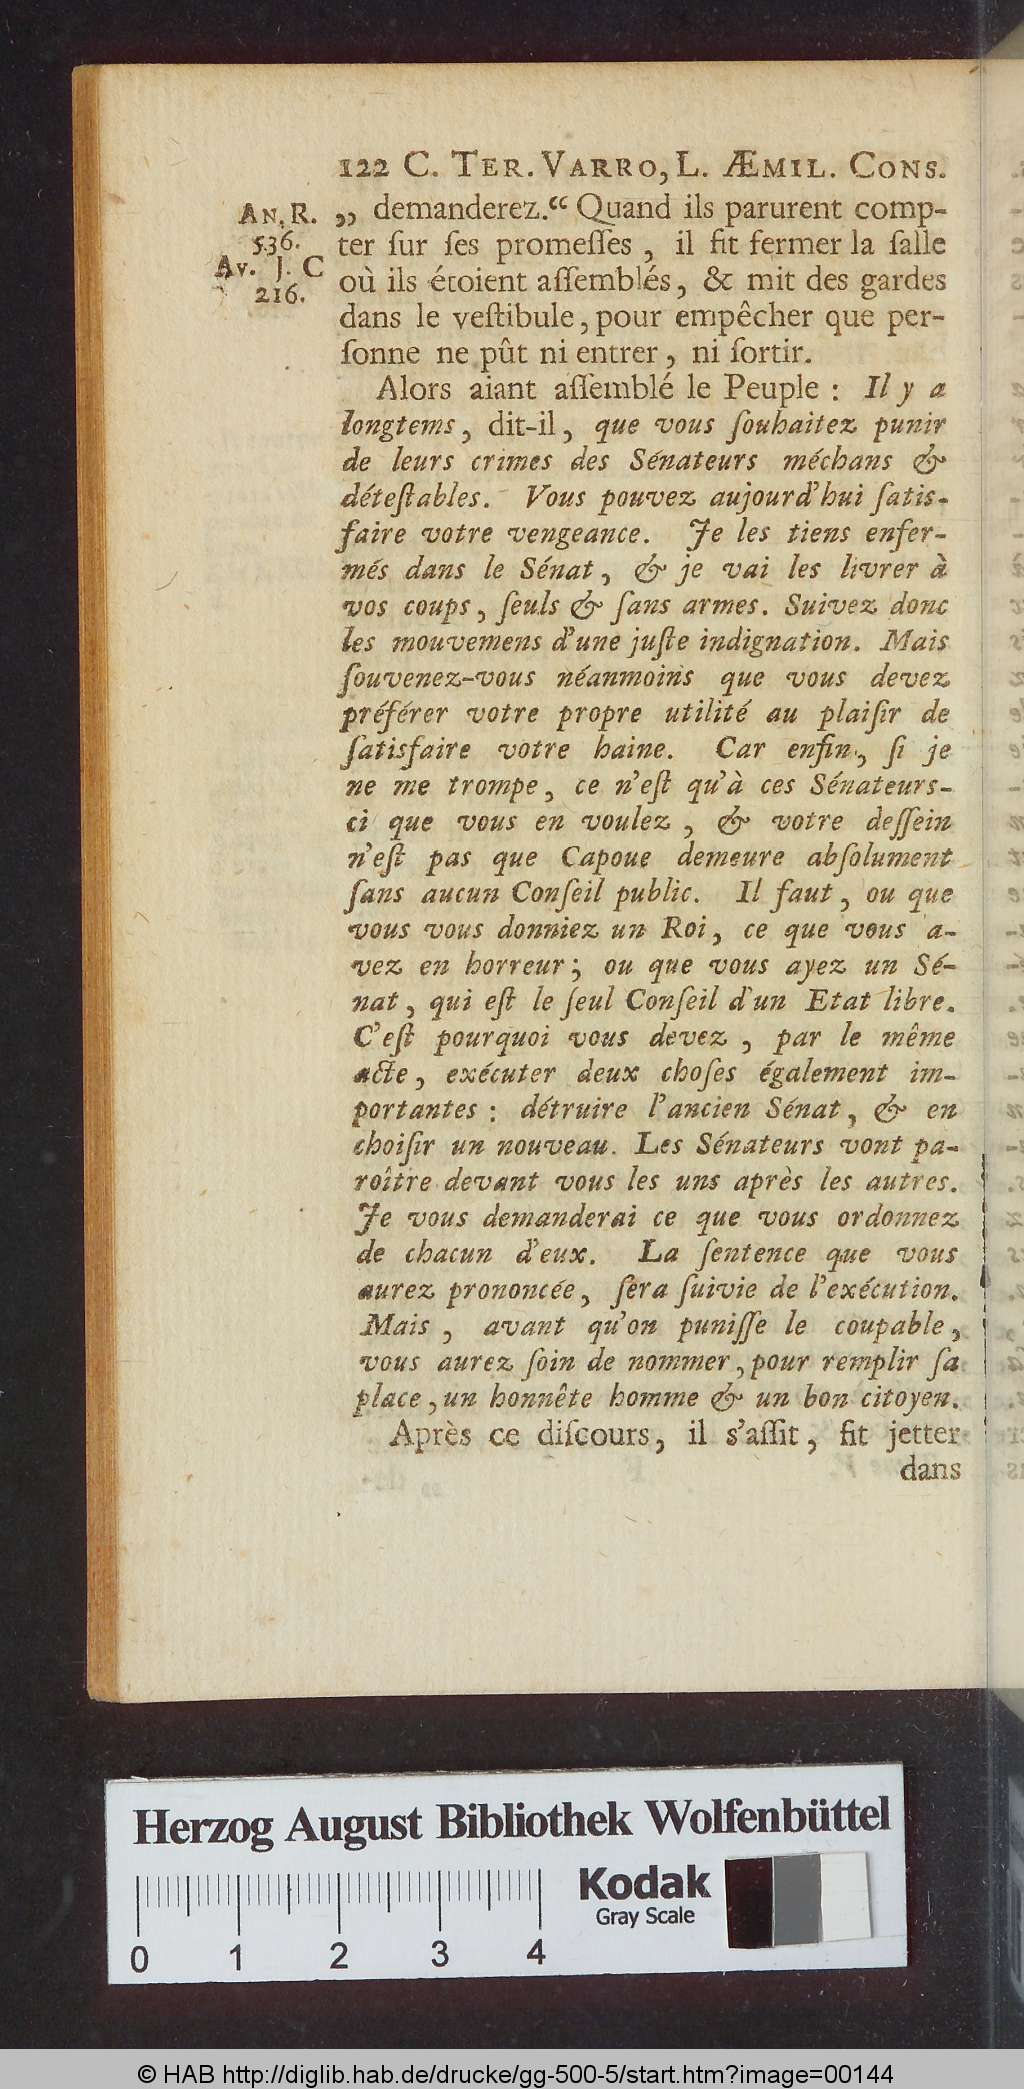 122 C. TER. VARRO, L. ÆMIL. CONS.
AN. R.
536.
AV. J. C
216.
„ demanderez.“ Quand ils parurent comp-
ter ſur ſes promeſſes, il fit fermer la ſalle
où ils étoient aſſemblés, & mit des gardes
dans le veſtibule, pour empêcher que per-
ſonne ne pût ni entrer, ni ſortir.
Alors aiant aſſemblé le Peuple : Il y a
longtems, dit-il, que vous ſouhaitez punir
de leurs crimes des Sénateurs méchans &
déteſtables. Vous pouvez aujourd'hui ſatis-
faire votre vengeance. Je les tiens enfer-
més dans le Sénat, & je vai les livrer à
vos coups, ſeuls & ſans armes. Suivez donc
les mouvemens d'une juſte indignation. Mais
ſouvenez-vous néanmoins que vous devez
préférer votre propre utilité au plaiſir de
ſatisfaire votre haine. Car enfin, ſi je
ne me trompe, ce n'eſt qu'à ces Sénateurs-
ci que vous en voulez, & votre deſſein
n'eſt pas que Capoue demeure abſolument
ſans aucun Conſeil public. Il faut, ou que
vous vous donniez un Roi, ce que vous a-
vez en horreur; ou que vous ayez un Sé-
nat, qui eſt le ſeul Conſeil d'un Etat libre.
C'eſt pourquoi vous devez, par le même
acte, exécuter deux choſes également im-
portantes : détruire l'ancien Sénat, & en
choiſir un nouveau. Les Sénateurs vont pa-
roître devant vous les uns après les autres.
Je vous demanderai ce que vous ordonnez
de chacun d'eux. La ſentence que vous
aurez prononcée, ſera ſuivie de l'exécution.
Mais, avant qu'on puniſſe le coupable,
vous aurez ſoin de nommer, pour remplir ſa
place, un honnête homme & un bon citoyen.
Après ce diſcours, il s'aſſit, fit jetter
dans
Herzog August Bibliothek Wolfenbüttel
Kodak
Gray Scale
0 1 2 3 4
© HAB http://diglib.hab.de/drucke/gg-500-5/start.htm?image=00144